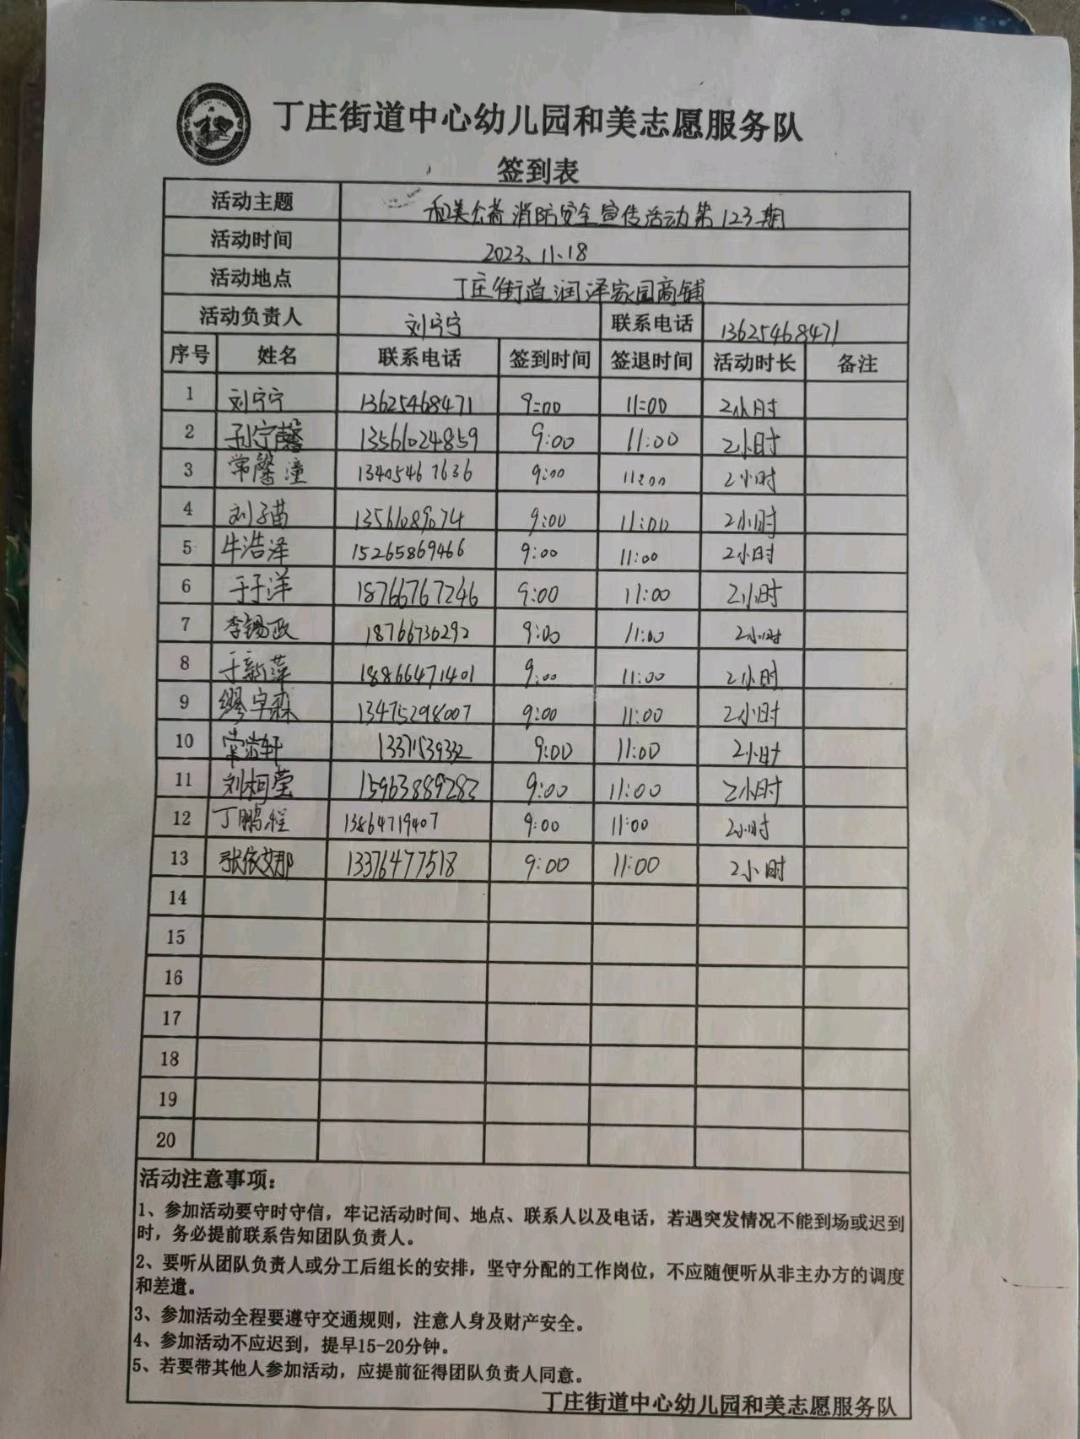 丁庄街道中心幼儿园和美志愿服务队
签到表
活动主题 和美公益消防安全宣传活动第123期
活动时间 2023、11、18
活动地点 丁庄街道润泽家园商铺
活动负责人 刘宁宁 联系电话 13625468471
序号 姓名 联系电话 签到时间 签退时间 活动时长 备注
1 刘宁宁 13625468471 9:00 11:00 2小时
2 孙宁馨 13561024859 9:00 11:00 2小时
3 常馨潼 13405467636 9:00 11:00 2小时
4 刘子苗 13561089074 9:00 11:00 2小时
5 牛浩泽 15265869466 9:00 11:00 2小时
6 于子洋 18766767246 9:00 11:00 2小时
7 李锡政 18766736292 9:00 11:00 2小时
8 于新萍 18866471401 9:00 11:00 2小时
9 缪宇森 13475298007 9:00 11:00 2小时
10 9:00 11:00 2小时
11 刘柯莹 15963889283 9:00 11:00 2小时
12 丁鹏程 13864719407 9:00 11:00 2小时
13 张依艾那 13376477518 9:00 11:00 2小时
14
15
16
17
18
19
20
活动注意事项：
1、参加活动要守时守信，牢记活动时间、地点、联系人以及电话，若遇突发情况不能到场或迟到
时，务必提前联系告知团队负责人。
2、要听从团队负责人或分工后组长的安排，坚守分配的工作岗位，不应随便听从非主办方的调度
和差遣。
3、参加活动全程要遵守交通规则，注意人身及财产安全。
4、参加活动不应迟到，提早15-20分钟。
5、若要带其他人参加活动，应提前征得团队负责人同意。
丁庄街道中心幼儿园和美志愿服务队